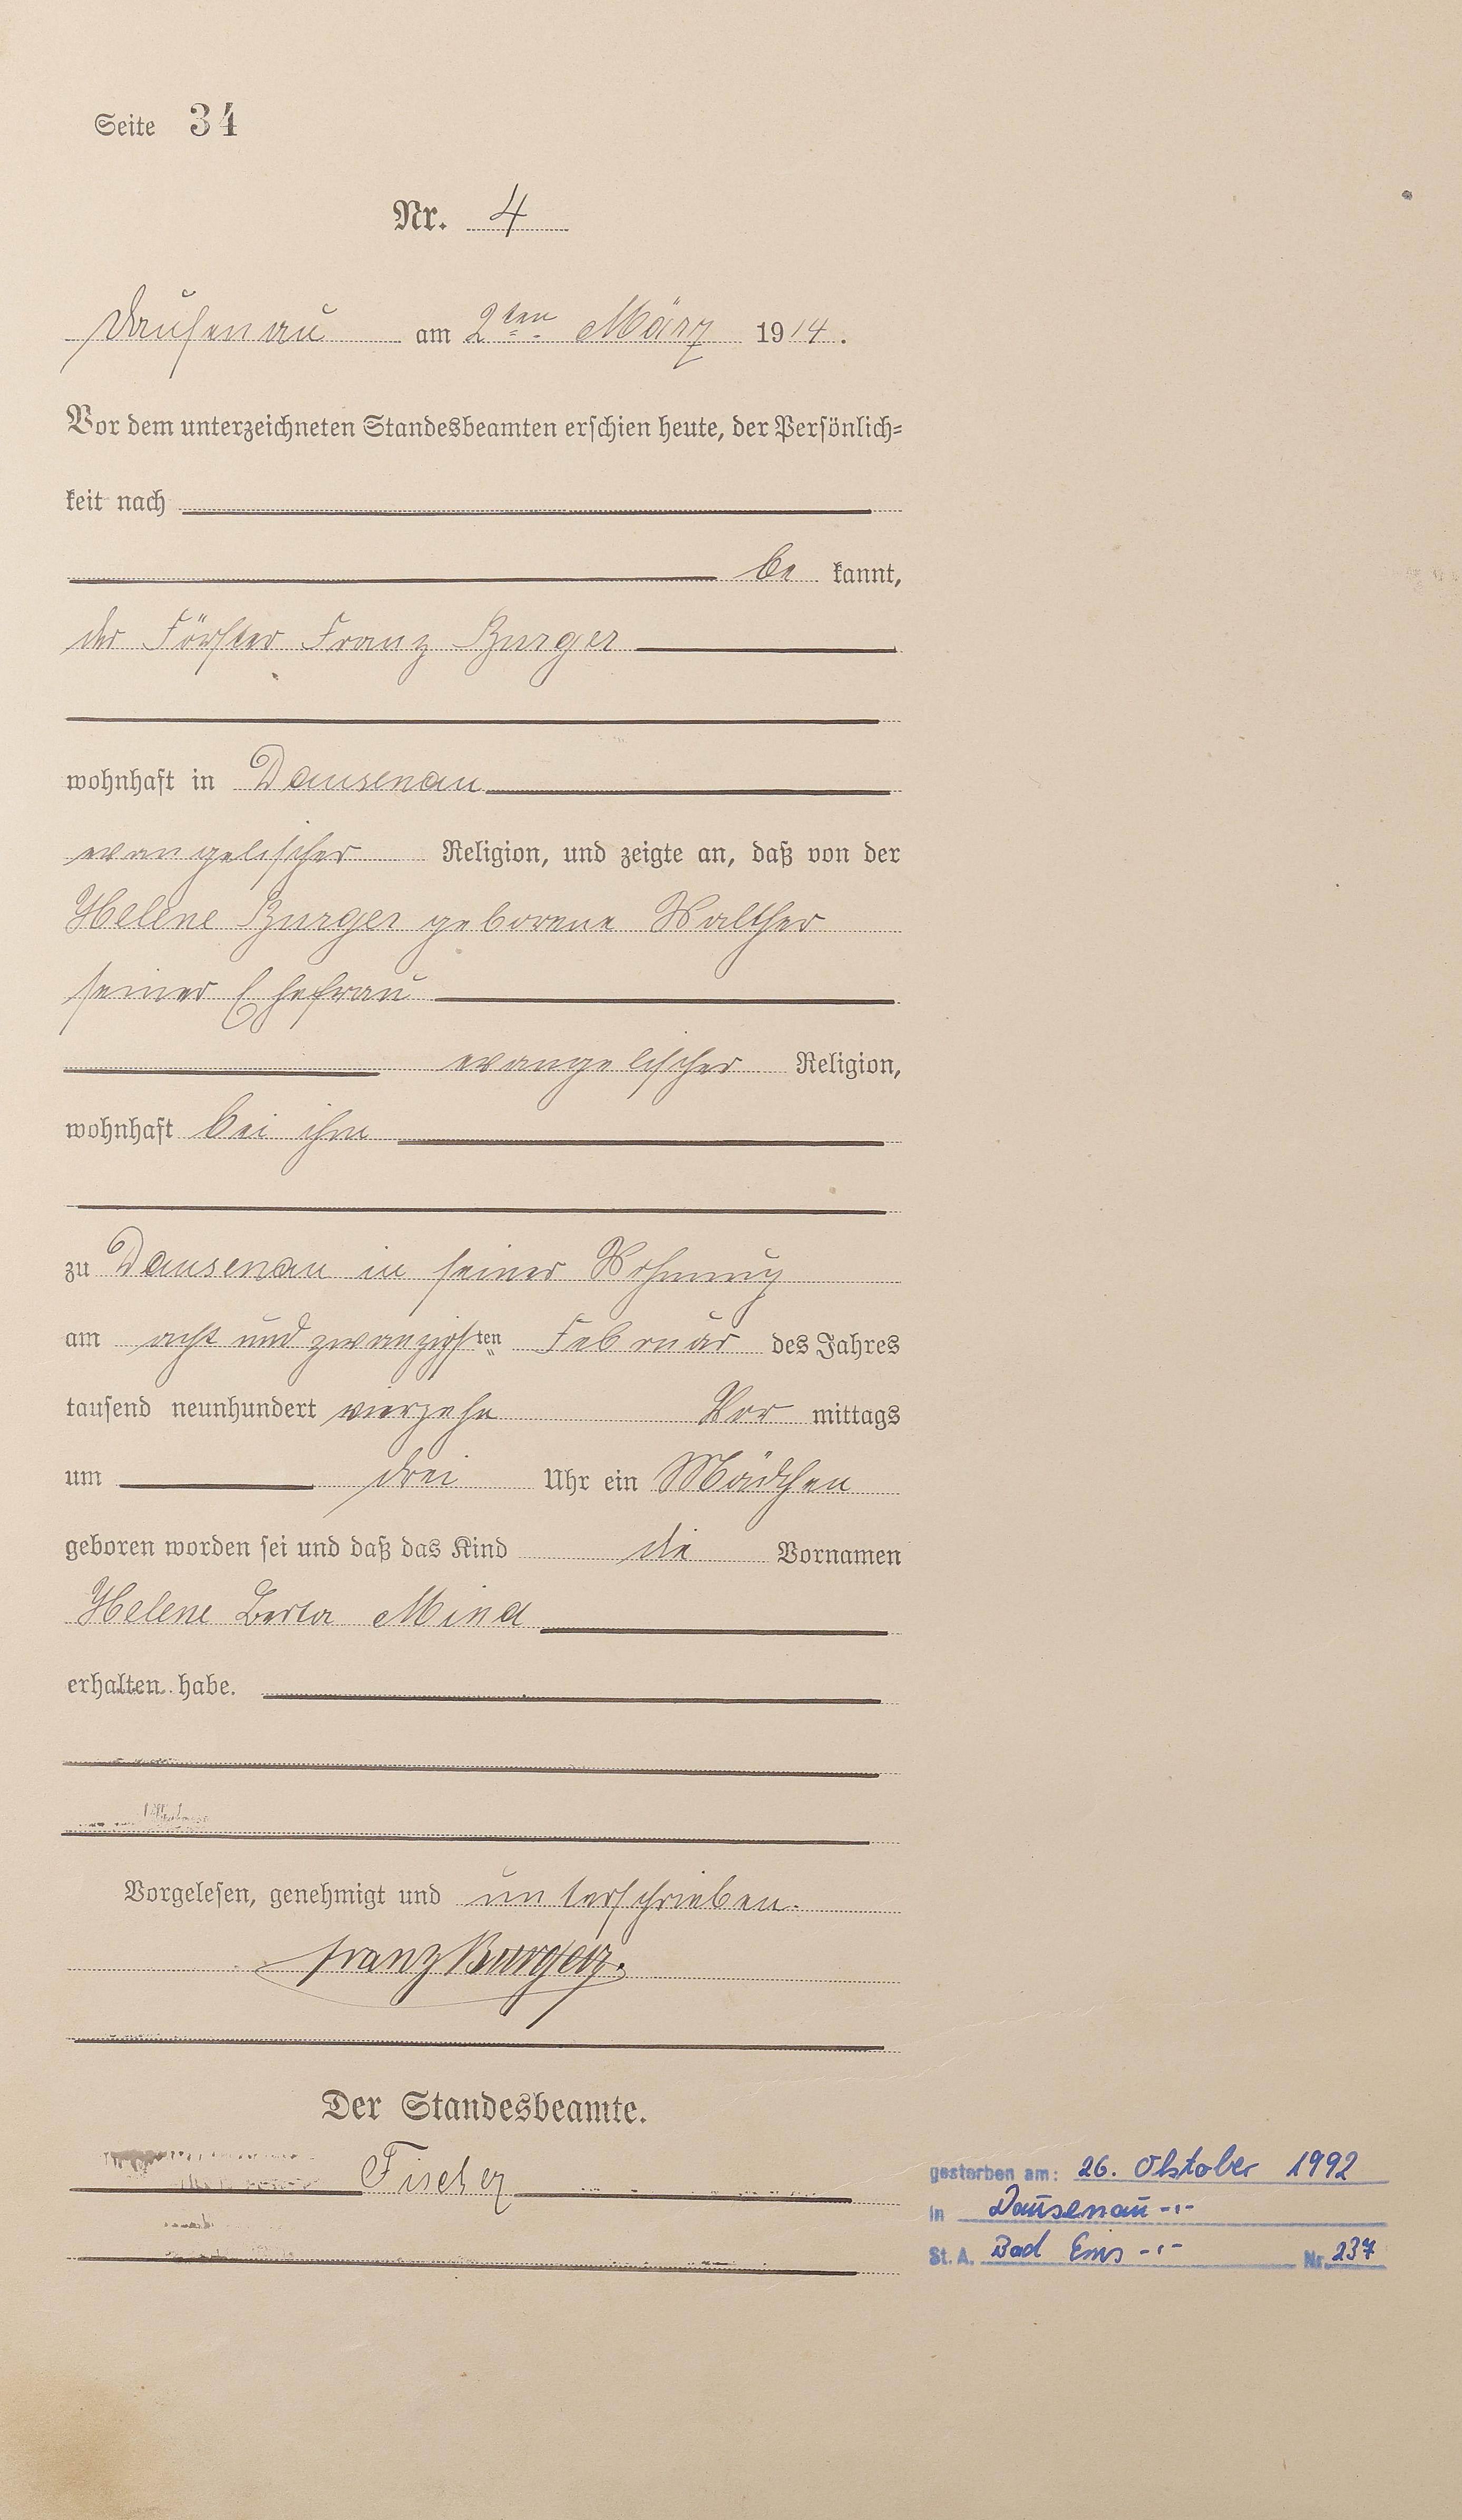 Seite 34
Nr. 4
Dausenau am 2ten März 1914.
Vor dem unterzeichneten Standesbeamten erschien heute, der Persönlich=
keit nach
be kannt,
der Förster Franz Burger
wohnhaft in Dausenau
evangelischer Religion, und zeigte an, daß von der
Helene Burger geborene Walther
seiner Ehefrau
evangelischer Religion,
wohnhaft bei ihm
zu Dausenau in seiner Wohnung
am acht und zwanzigsten Februar des Jahres
tausend neunhundert vierzehn Vor mittags
um drei Uhr ein Mädchen
geboren worden sei und daß das Kind die Vornamen
Helene Berta Mina
erhalten habe.
Vorgelesen, genehmigt und unterschrieben.
Franz Burger.
Der Standesbeamte.
Fischer
gestorben am: 26. Oktober 1992
in Dausenau -,-
St. A. Bad Ems -,- Nr. 237